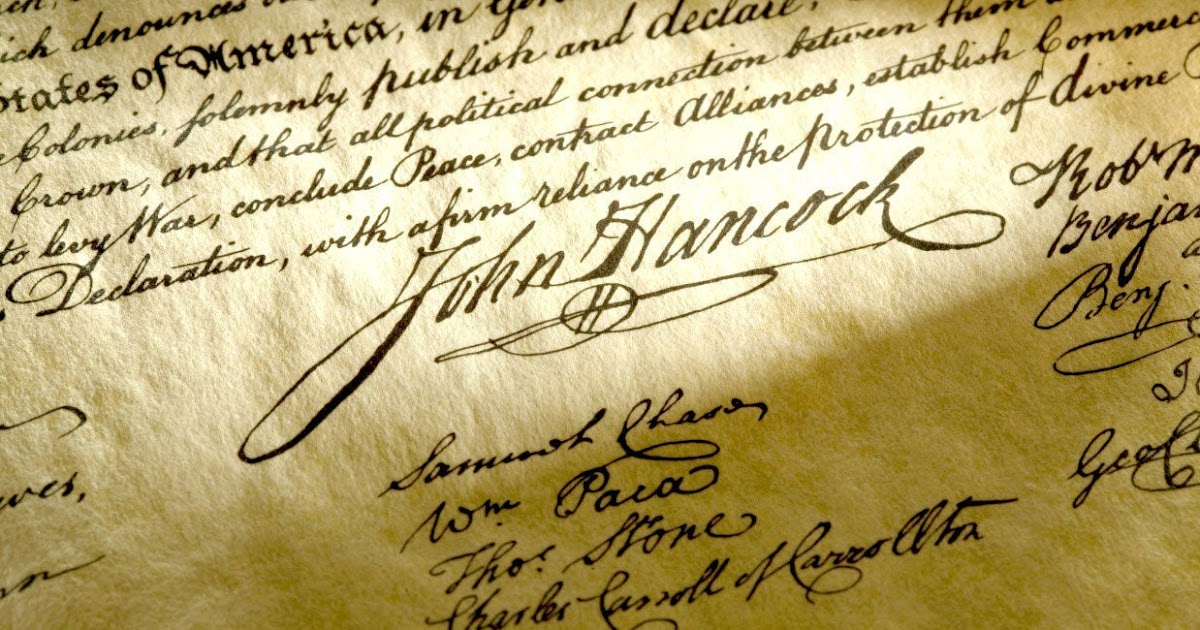 ich denounces
States of America, in Gen
Colonies, solemnly publish and declare,
Crown, and that all political connection between them
to levy War, conclude Peace, contract Alliances, establish Commerc
Declaration, with a firm reliance on the protection of divine
John Hancock
Rob M
Benja
Benj.
Samuel Chase
Wm Paca
Thos. Stone
Charles Carroll of Carrollton
Geo C